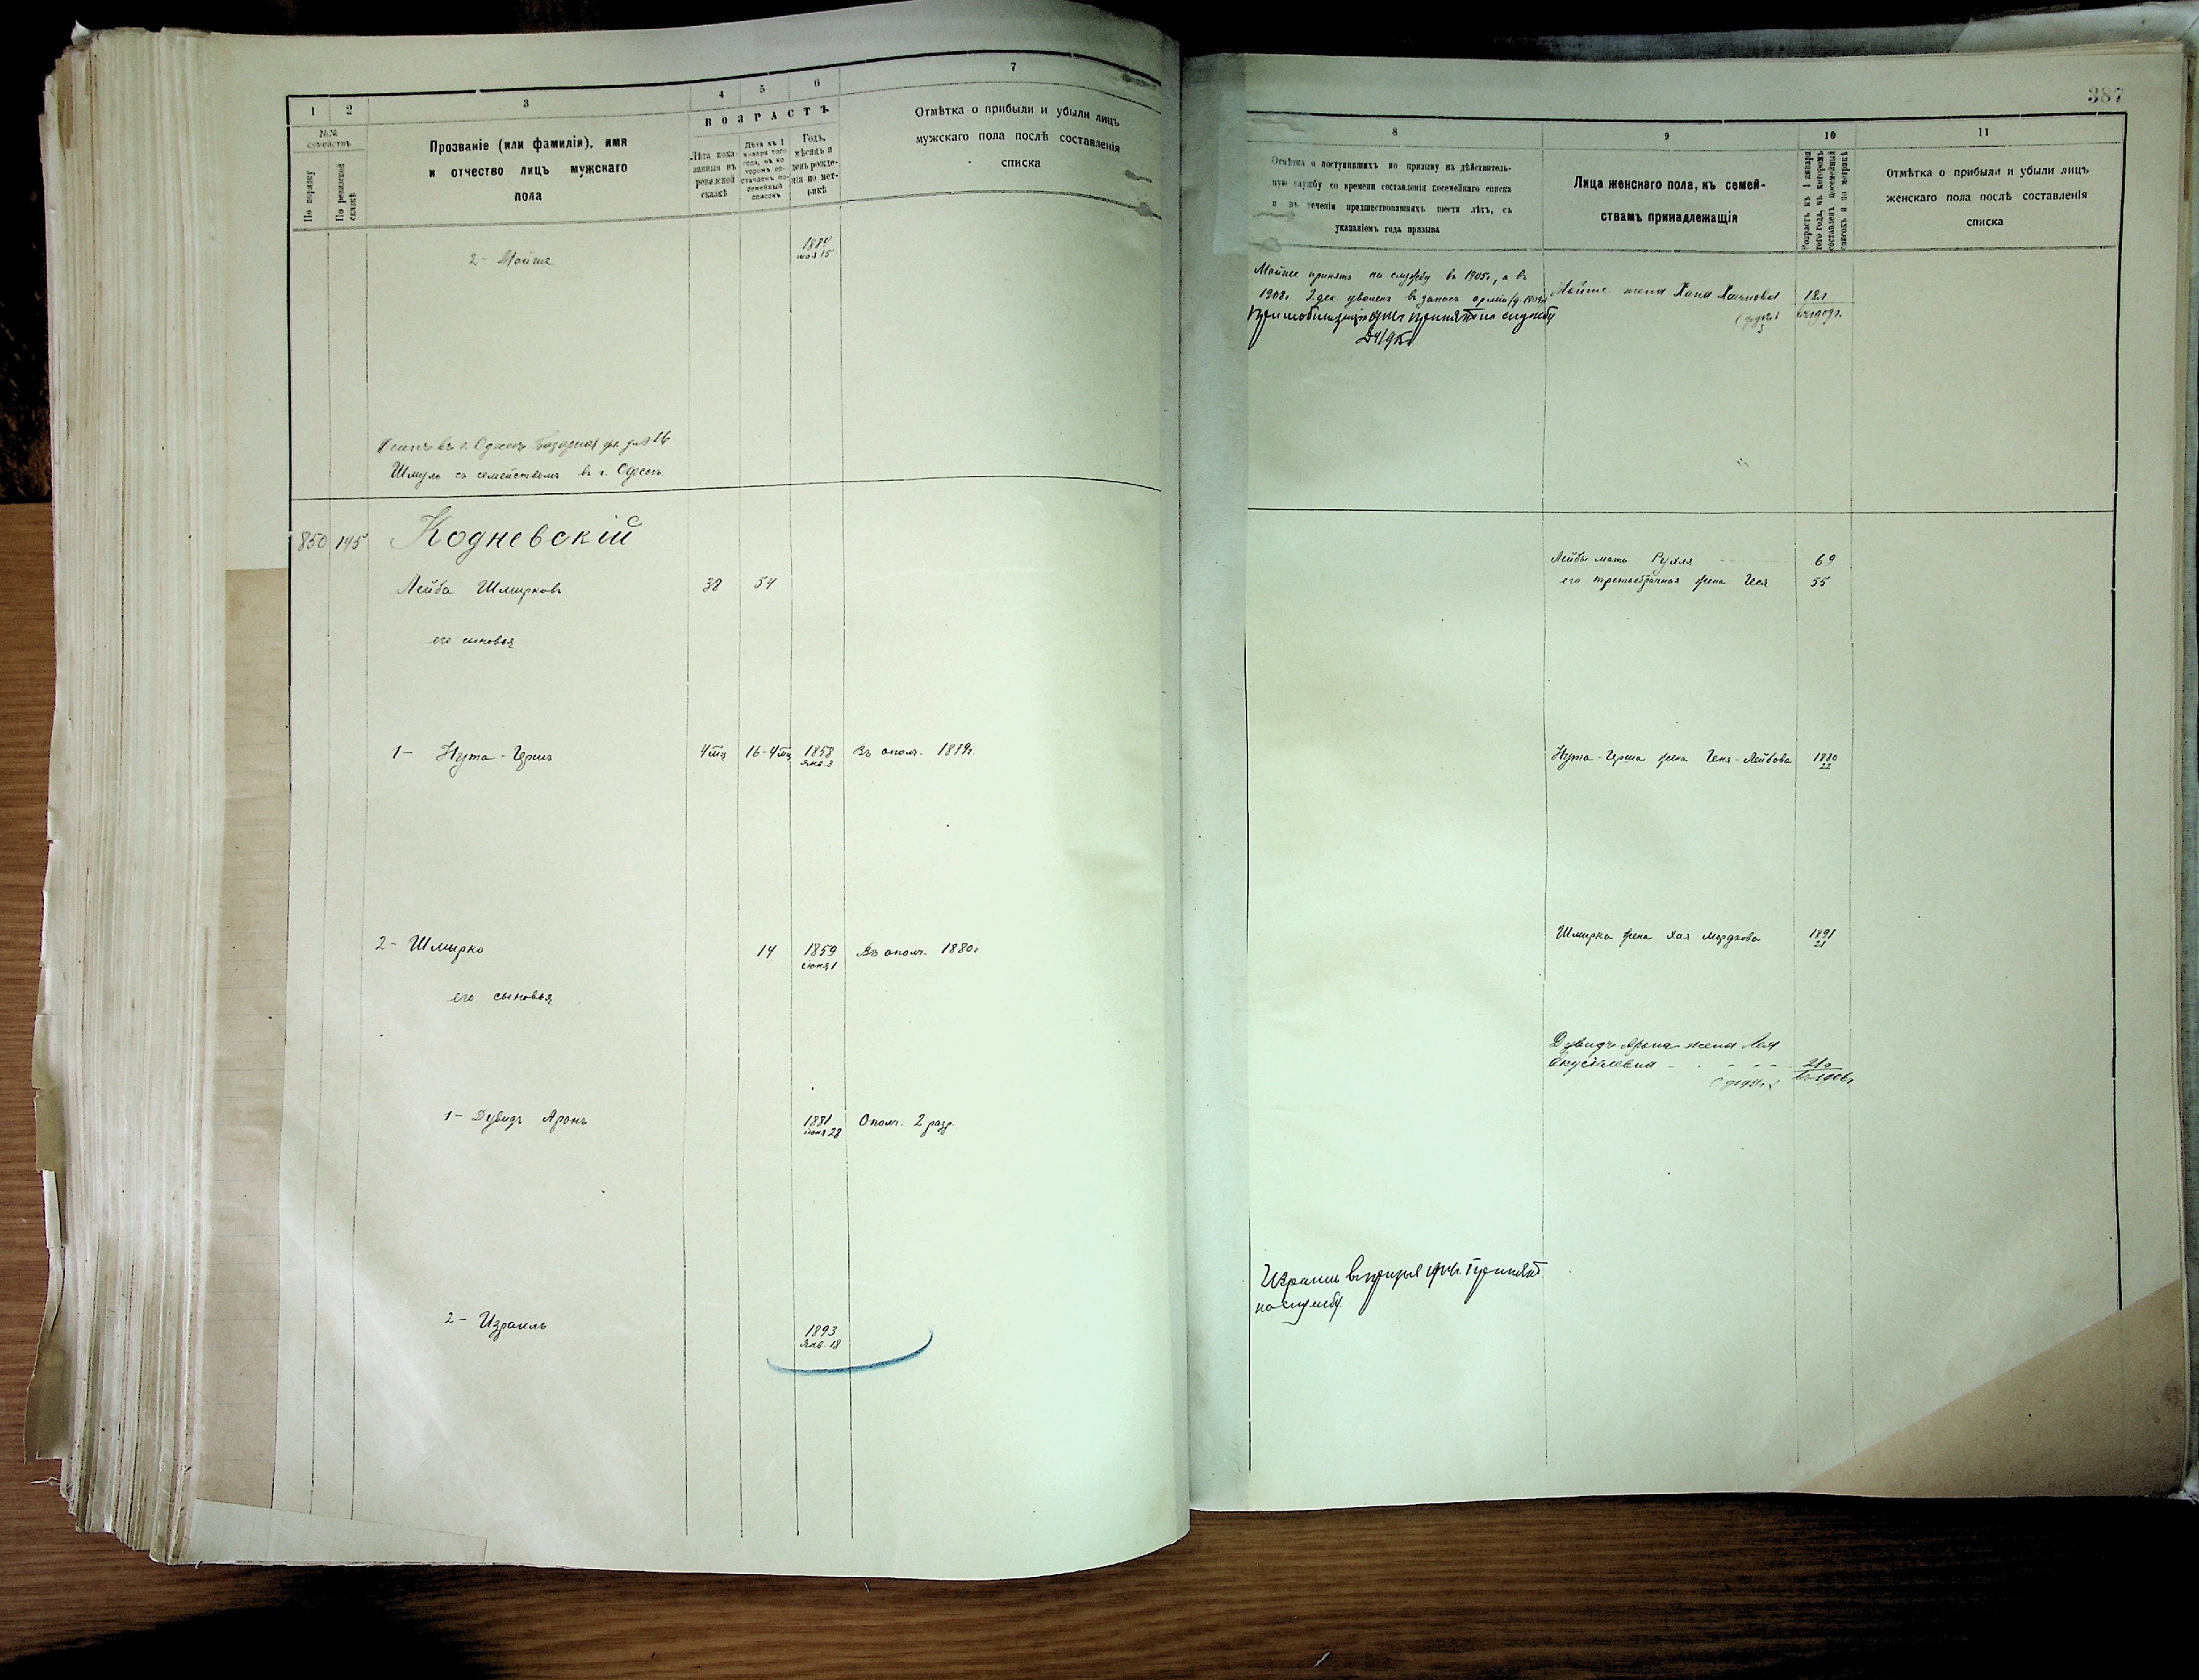 1 2 3 4 5 6 7
№№ семействъ
По порядку
По ревизской сказкѣ
Прозваніе (или фамилія), имя
и отчество лицъ мужскаго
пола
ВОЗРАСТЪ
Лѣта пока-
занныя въ
ревизской
сказкѣ
Лѣта къ 1
января того
года, въ ко
торомъ со-
ставленъ по-
семейный
списокъ
Годъ,
мѣсяцъ и
день рожде-
нія по мет-
рикѣ
Отмѣтка о прибыли и убыли лицъ
мужскаго пола послѣ составленія
списка
2 - Мойше
15
въ г. Одессѣ Базарная ул. 16
Шмуль съ семействомъ въ г. Одессѣ
850 145 Кодневскій
Лейба Шмирковъ 38 54
его сыновья
1 - Нута - Гершъ 4 мц 16 - 4 мц 1858 Въ ополч. 1879г
янв 3
2 - Шмирко 14 1859 Въ ополч. 1880г
іюня 1
его сыновья
1 - Дувидъ Аронъ 1881 Ополч. 2 разр.
іюня 28
2 - Израиль 1893
янв. 18
387
8 9 10 11
Отмѣтка о поступившихъ по призыву на дѣйствитель-
ную службу со времени составленія посемейнаго списка
и въ теченіи предшествовавшихъ шести лѣтъ, съ
указаніемъ года призыва
Лица женскаго пола, къ семей-
ствамъ принадлежащія
Возрастъ къ 1 января
того года, въ которомъ
составленъ посемейный
списокъ и по метрикѣ
Отмѣтка о прибыли и убыли лицъ
женскаго пола послѣ составленія
списка
Мойше принятъ на службу въ 1905г, а въ
1908г 2 дек уволенъ въ запасъ арміи
Мойше жена Хана
принятъ на службу
Лейбы мать Рухля 69
его третьебрачная жена Гися 55
Нута - Герша жена Геня - Лейбова 1880
22
Шмирка жена Хая Мордкова 1891
21
Дувидъ Арона жена Лея
21г
Израиль въ призыв принят
на службу.